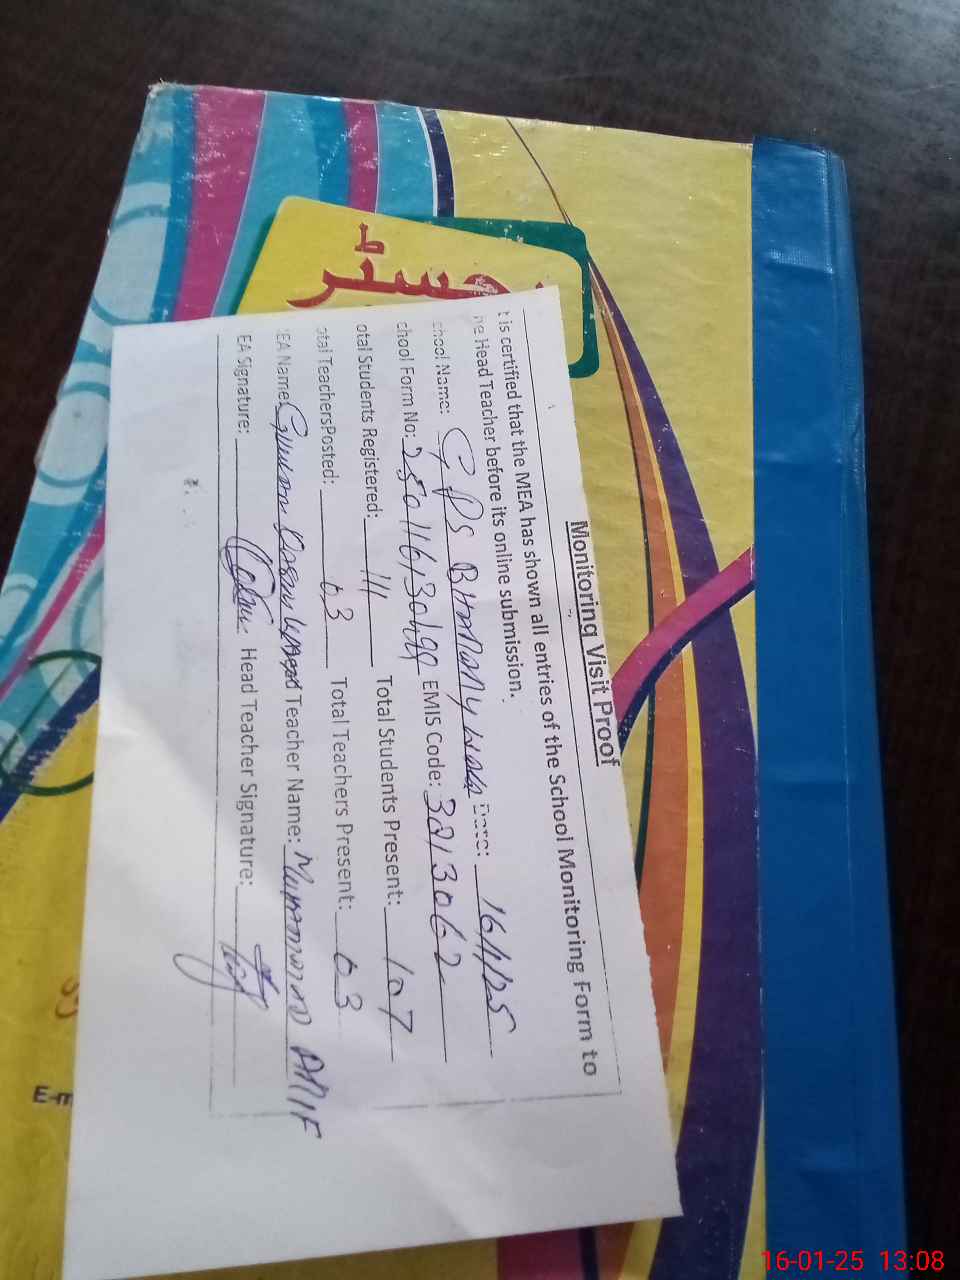 رجسٹر
Monitoring Visit Proof
t is certified that the MEA has shown all entries of the School Monitoring Form to
he Head Teacher before its online submission.
chool Name: GPS Date: 16/1/25
chool Form No: EMIS Code: 3213062
otal Students Registered: 111 Total Students Present: 107
otal TeachersPosted: 03 Total Teachers Present: 03
EA Name: Teacher Name: Muhammad Arif
EA Signature: Head Teacher Signature:
E-m
16-01-25 13:08